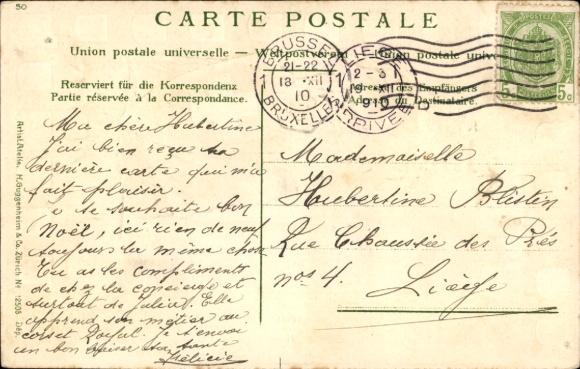 50
CARTE POSTALE
Union postale universelle — Weltpostverein — Union postale universelle
Reserviert für die Korrespondenz
Partie réservée à la Correspondance.
Adresse des Empfängers
Adresse du Destinataire.
BRUSSEL
21-22
18 XII
10
BRUXELLES
LIEGE
2-3
19 XII
ARRIVEE
5c 5c
Ma chère Hubertine
J'ai bien reçu ta
dernière carte qui m'a
fait plaisir.
Je te souhaite bon
Noël, ici rien de neuf
toujours la même chose
Tu as les compliments
de chez la concierge et
surtout de Julia. Elle
apprend son métier au
corset. Je t'envoi
un bon baiser ta tante
Félicie
Mademoiselle
Hubertine Blisten
Rue Chaussée des Prés
nos 4.
Liège
Artist. Atelie. H. Guggenheim & Co., Zürich No 12508 Dép.